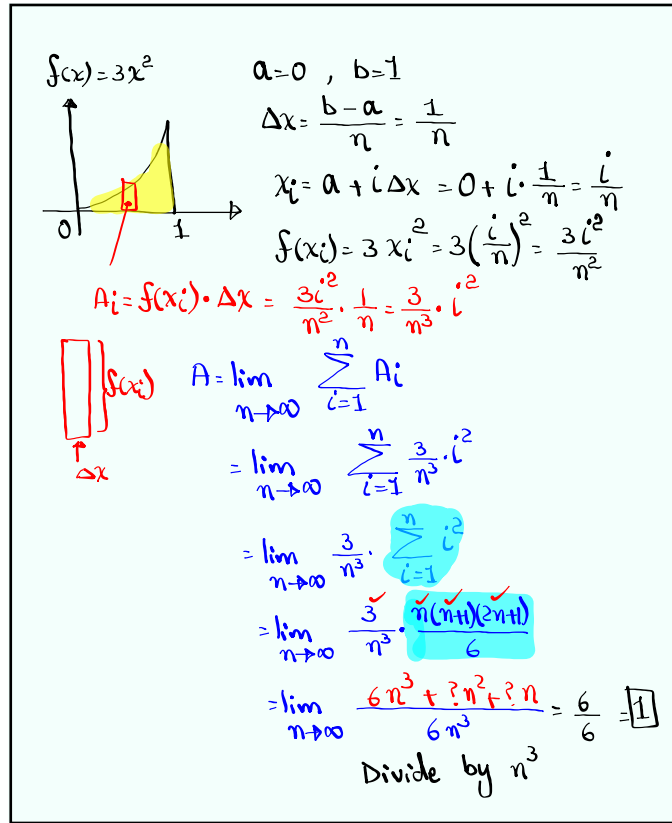 f(x) = 3x²
a=0 , b=1
Δx = (b-a)/n = 1/n
xᵢ = a + i Δx = 0 + i · 1/n = i/n
0 1
f(xᵢ) = 3 xᵢ² = 3(i/n)² = 3i²/n²
Aᵢ = f(xᵢ) · Δx = 3i²/n² · 1/n = 3/n³ · i²
f(xᵢ)
Δx
A = lim n→∞ ∑ i=1 n Aᵢ
= lim n→∞ ∑ i=1 n 3/n³ · i²
= lim n→∞ 3/n³ · ∑ i=1 n i²
= lim n→∞ 3/n³ · n(n+1)(2n+1)/6
= lim n→∞ (6n³ + ?n² + ?n)/6n³ = 6/6 = 1
Divide by n³